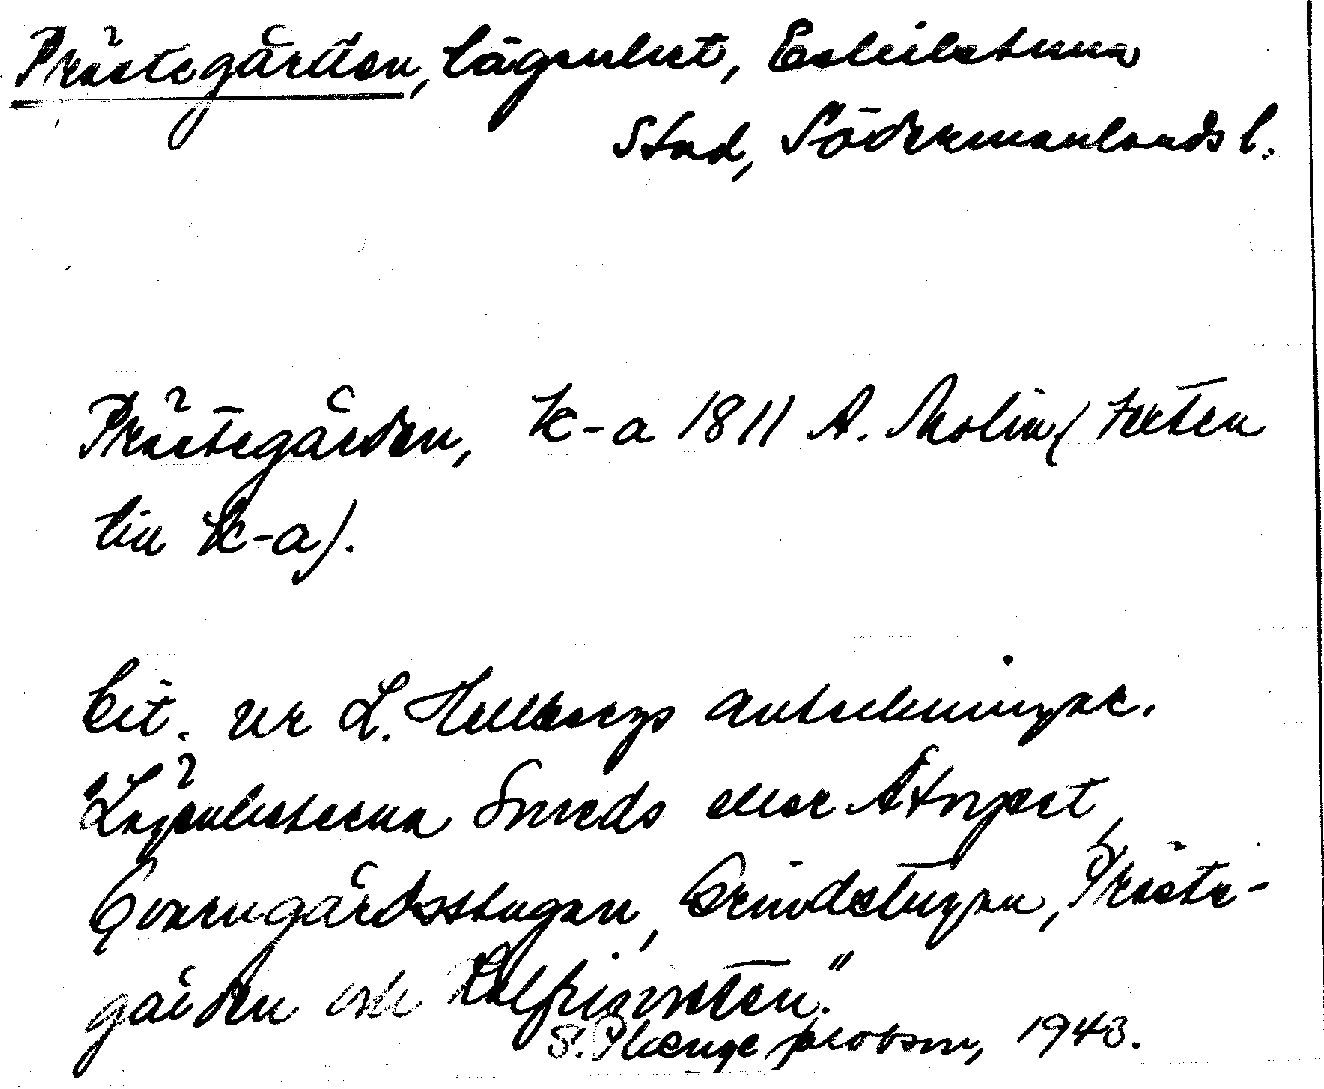 Prästegården, lägenhet, Eskilstuna
Stad, Södermanlands l.
Prästegården, K-a 1811 A. Molin (texten
till K-a).
Cit. ur L. Hellbergs anteckningar.
"Lägenheterna Smeds eller Åtorpet
Qvarngårdsstugan, Grindstugan, Präste-
gården och Kalfhagen."
S. Plænge Jacobson, 1943.